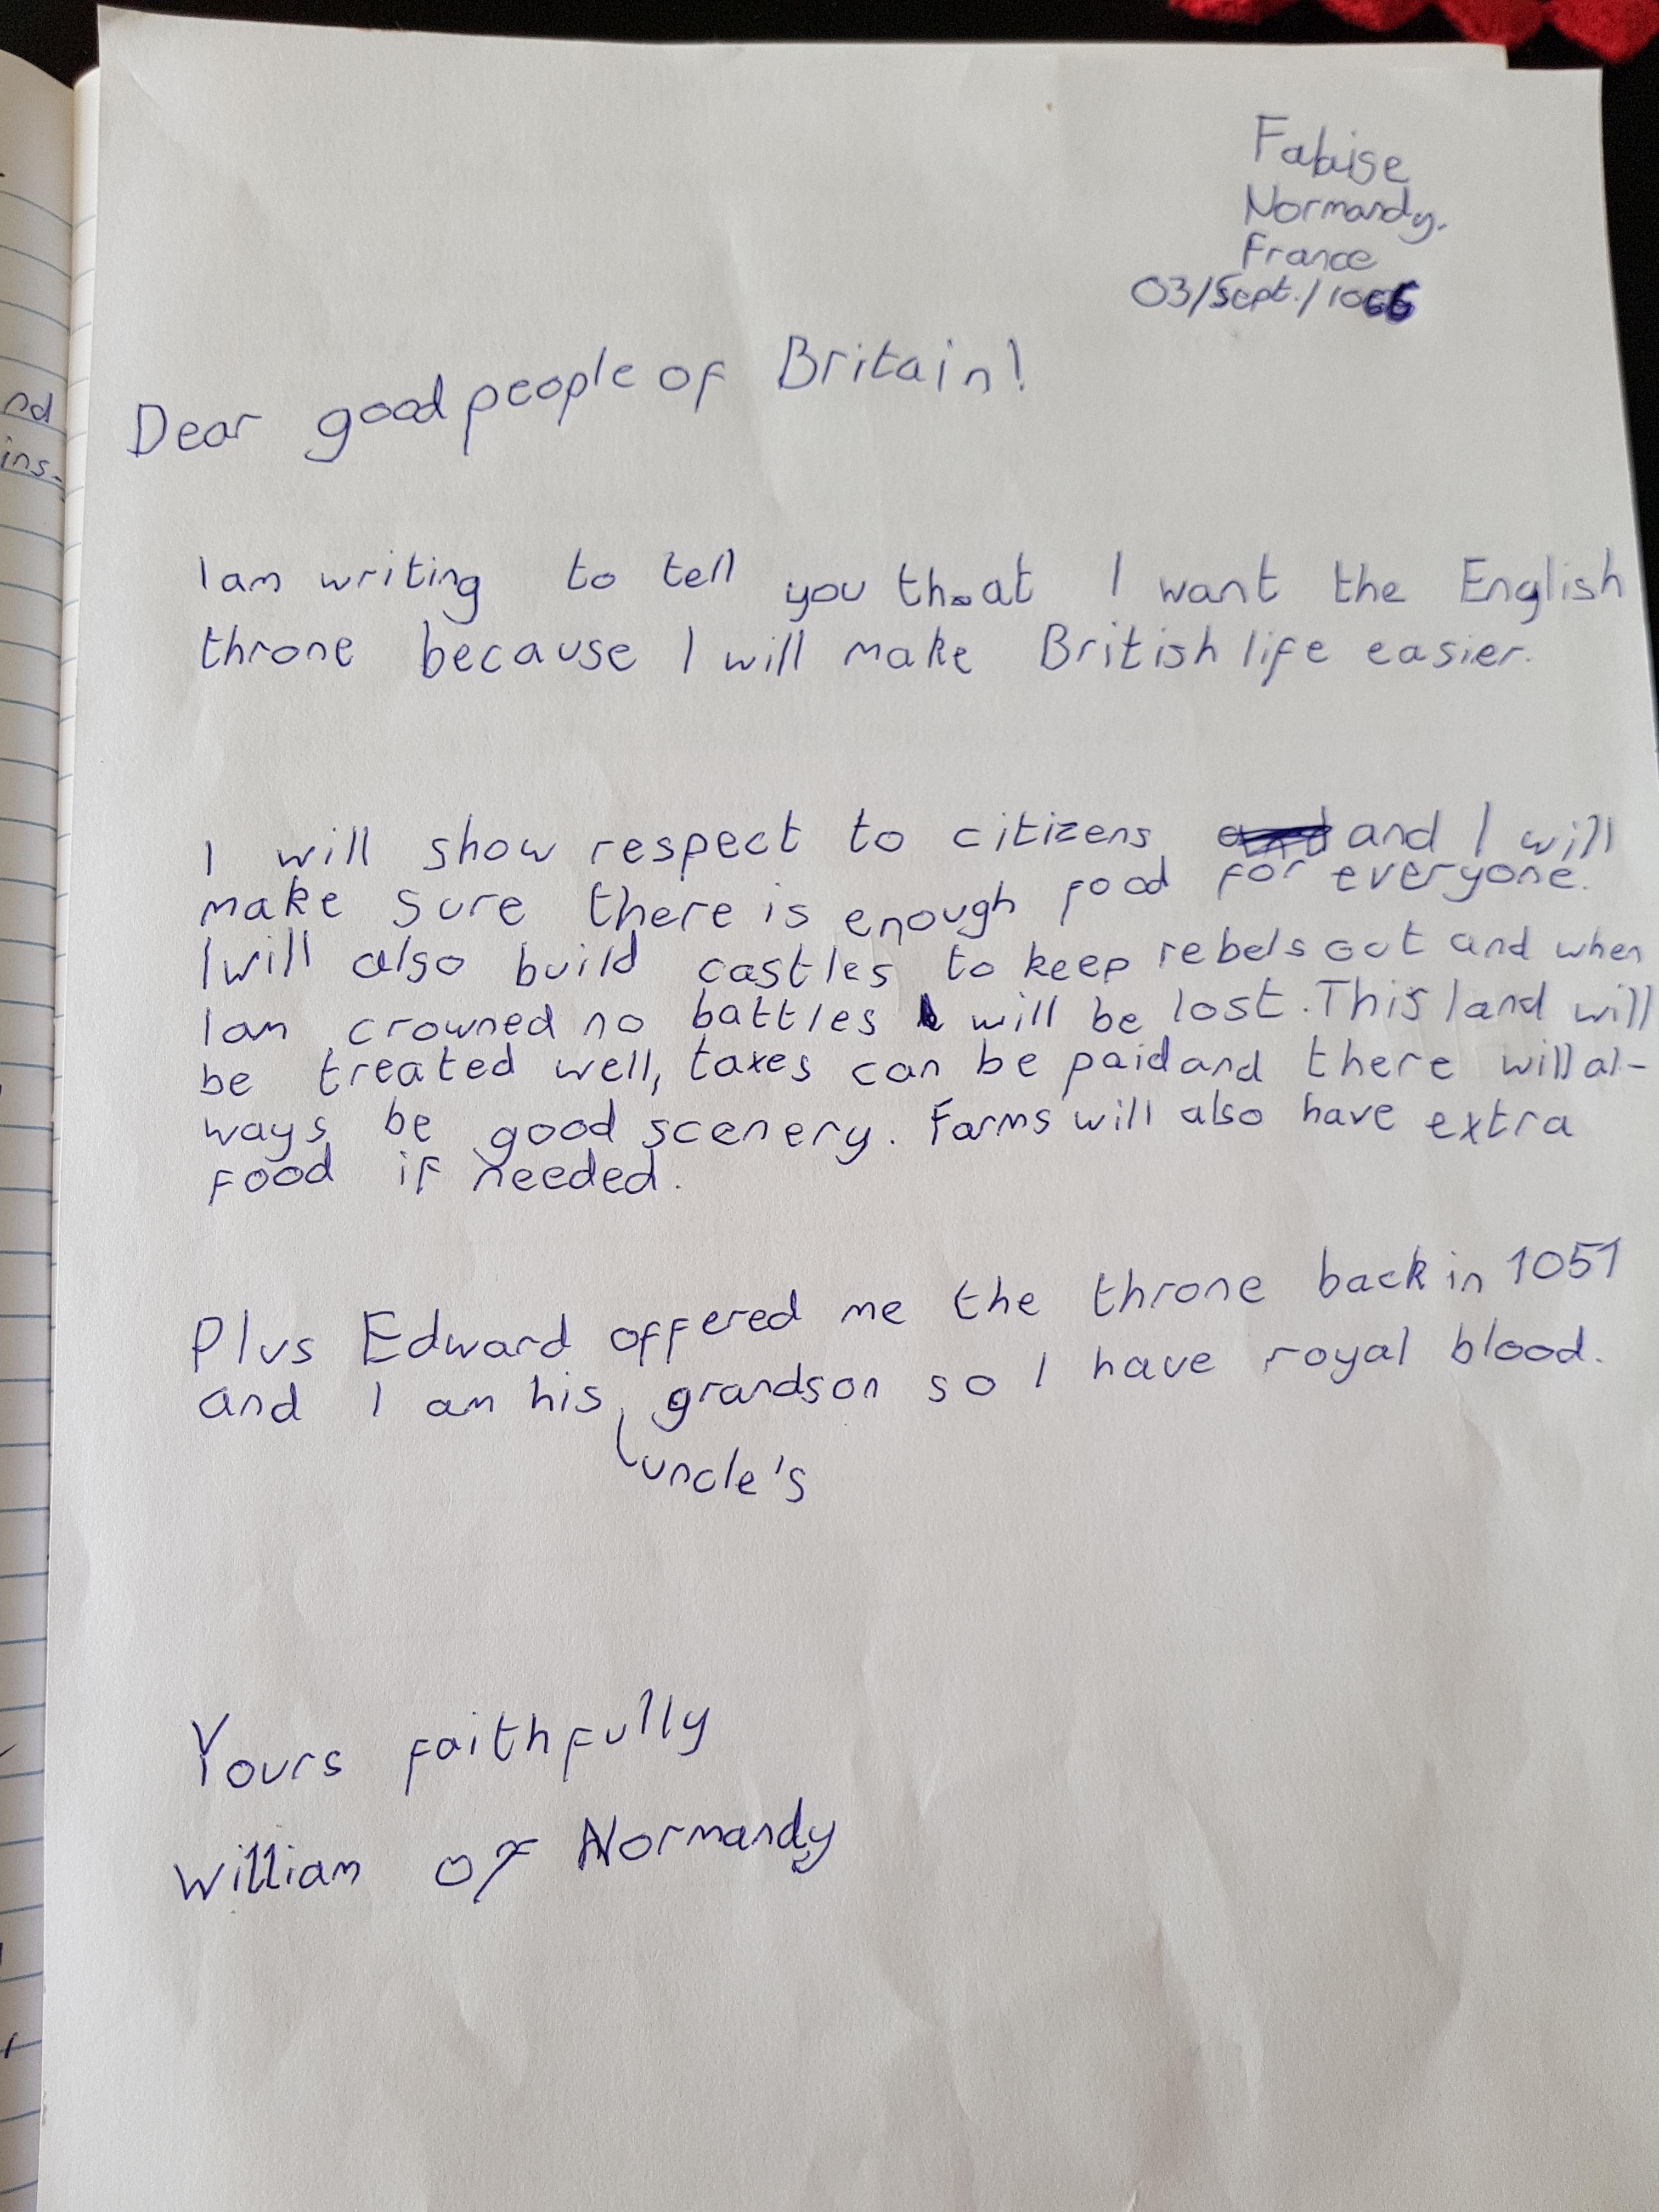 Falaise
Normandy.
France
03/Sept./1066
nd
ins.
Dear good people of Britain!
I am writing to tell you that I want the English
throne because I will make British life easier.
I will show respect to citizens and I will
make sure there is enough food for everyone.
I will also build castles to keep rebels out and when
I am crowned no battles will be lost. This land will
be treated well, taxes can be paid and there will al-
ways be good scenery. Farms will also have extra
food if needed.
Plus Edward offered me the throne back in 1051
and I am his uncle's grandson so I have royal blood.
Yours faithfully
William of Normandy